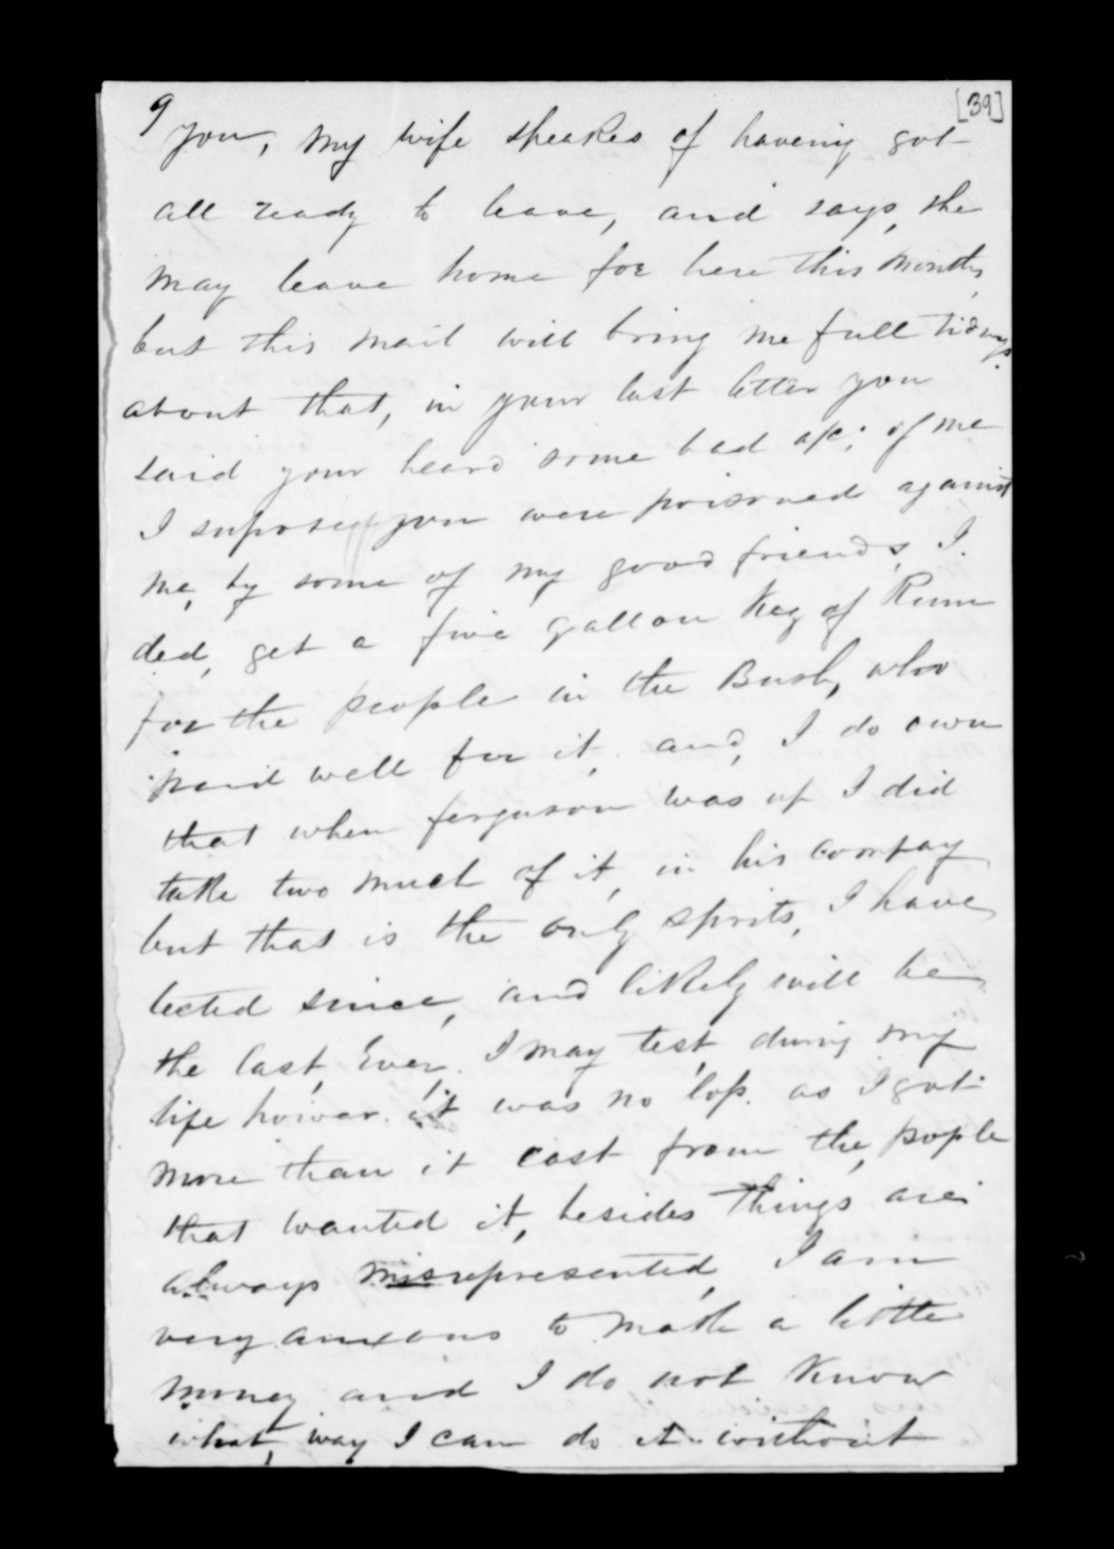 9 [39]
you, my wife speakes of haveing got
all ready to leave, and says, she
may leave home for here this month,
but this mail will bring me full tidings
about that, in your last letter you
said your heard some bad of me
I suposed you were poisoned against
me, by some of my good friends, I.
ded, get a five gallon Keg of Rum
for the people in the Bush, who
paid well for it, and, I do own
that when ferguson was up I did
take two much of it, in his compay
but that is the only sprits, I have
tected since, and likely will be
the last, ever. I may test, during my
life howar. it was no loss. as I got
more than it cost from the, pople
that wanted it, besides things are
always misrepresented, I am
very anxious to make a little
money and I do not Know
what, way I can do it without